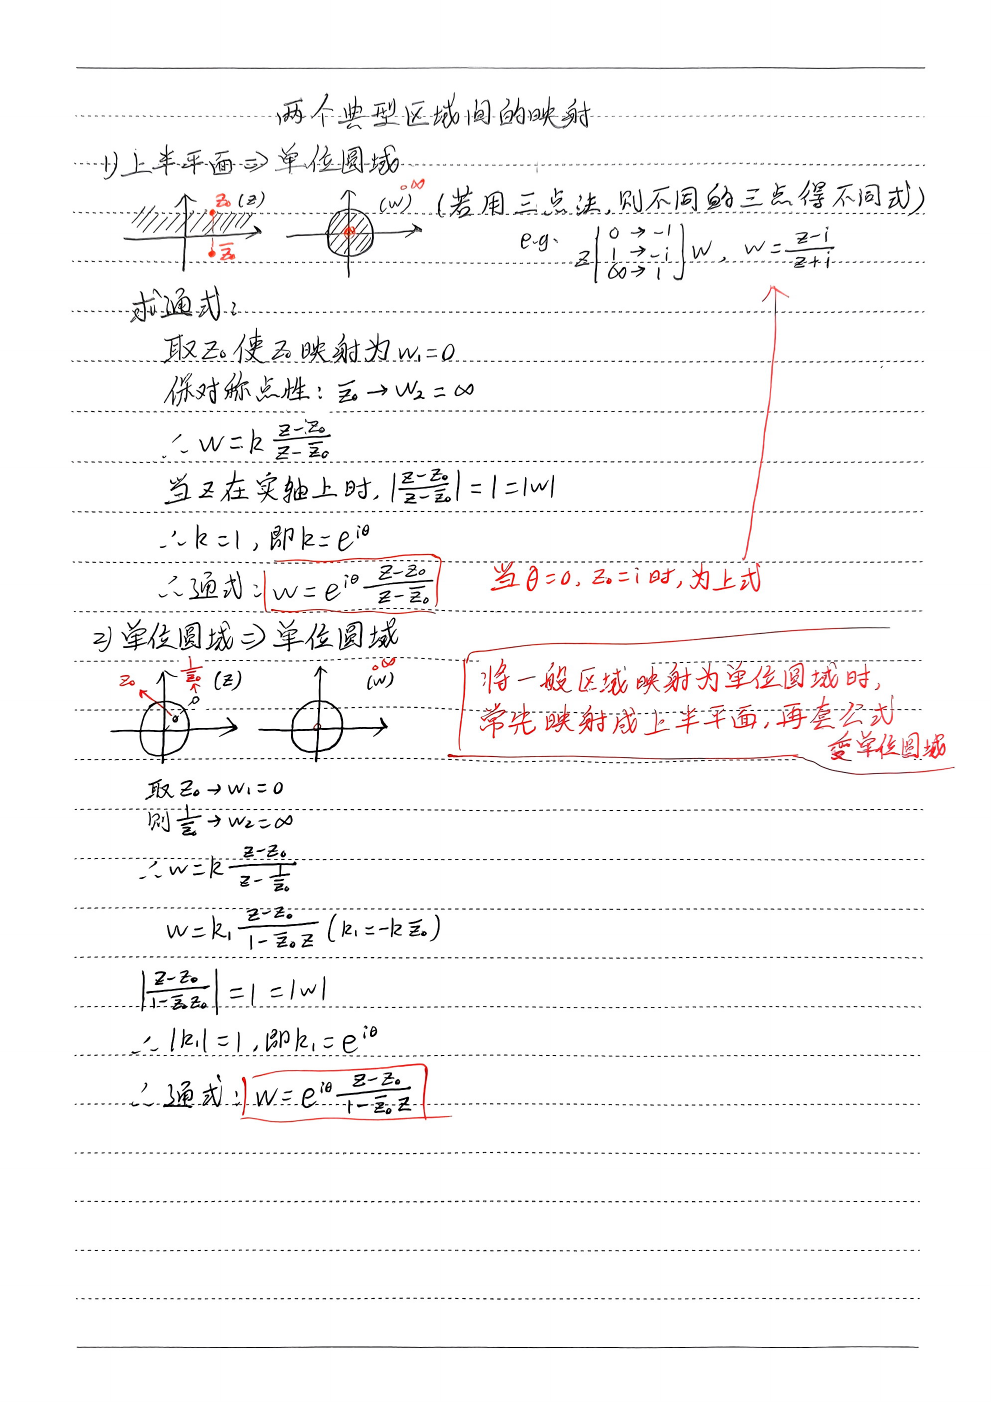 两个典型区域间的映射
1) 上半平面 ⇒ 单位圆域
z₀ (z)
z̄₀
∞ (w)
(若用三点法,则不同的三点得不同式)
e.g. z { 0 → -1, 1 → -i, ∞ → 1 } w, w = (z-i)/(z+i)
求通式:
取z₀使z₀映射为w₁=0
保对称点性: z̄₀ → w₂ = ∞
∴ w = k (z-z₀)/(z-z̄₀)
当z在实轴上时, |(z-z₀)/(z-z̄₀)| = 1 = |w|
∴ k = 1, 即k = e^{iθ}
∴ 通式: w = e^{iθ} (z-z₀)/(z-z̄₀)
当θ=0, z₀=i时,为上式
2) 单位圆域 ⇒ 单位圆域
z₀ 1/z̄₀ (z)
∞ (w)
将一般区域映射为单位圆域时,
常先映射成上半平面,再套公式
变单位圆域
取z₀ → w₁=0
则1/z̄₀ → w₂=∞
∴ w = k (z-z₀)/(z-1/z̄₀)
w = k₁ (z-z₀)/(1-z̄₀z) (k₁=-kz̄₀)
|(z-z₀)/(1-z̄₀z₀)| = 1 = |w|
∴ |k₁| = 1, 即k₁ = e^{iθ}
∴ 通式: w = e^{iθ} (z-z₀)/(1-z̄₀z)